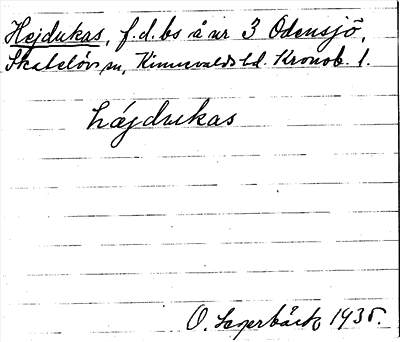 Hejdukas, f.d. bs å nr 3 Odensjö,
Skatelövs sn, Kinnevalds hd. Kronob. l.
håjdukas
O. Lagerbäck 1935.